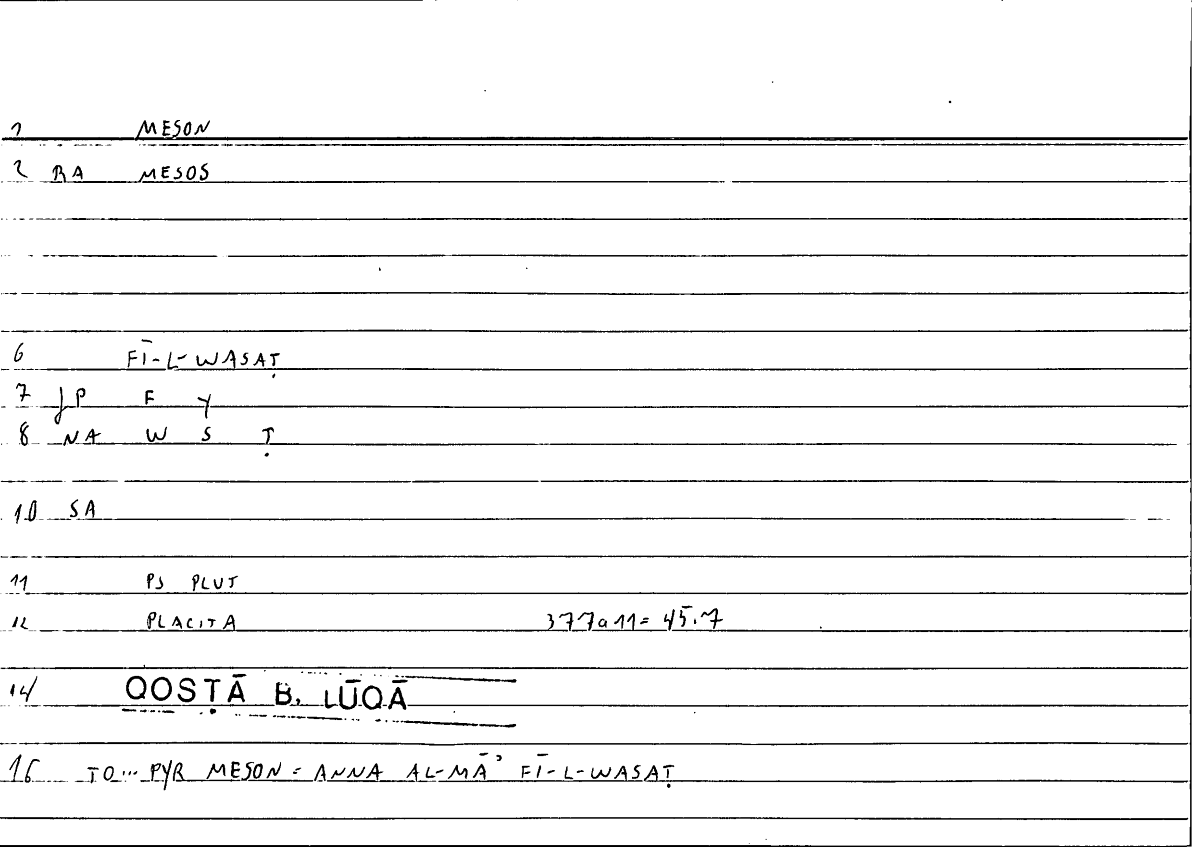 1 MESON
2 RA MESOS
6 FĪ-L-WASAṬ
7 JP F Y
8 NA W S Ṭ
10 SA
11 PS PLUT
12 PLACITA 377a11= 45.7
14 QOSṬĀ B. LŪQĀ
16 TO... PYR MESON = ANNA AL-MĀʾ FĪ-L-WASAṬ